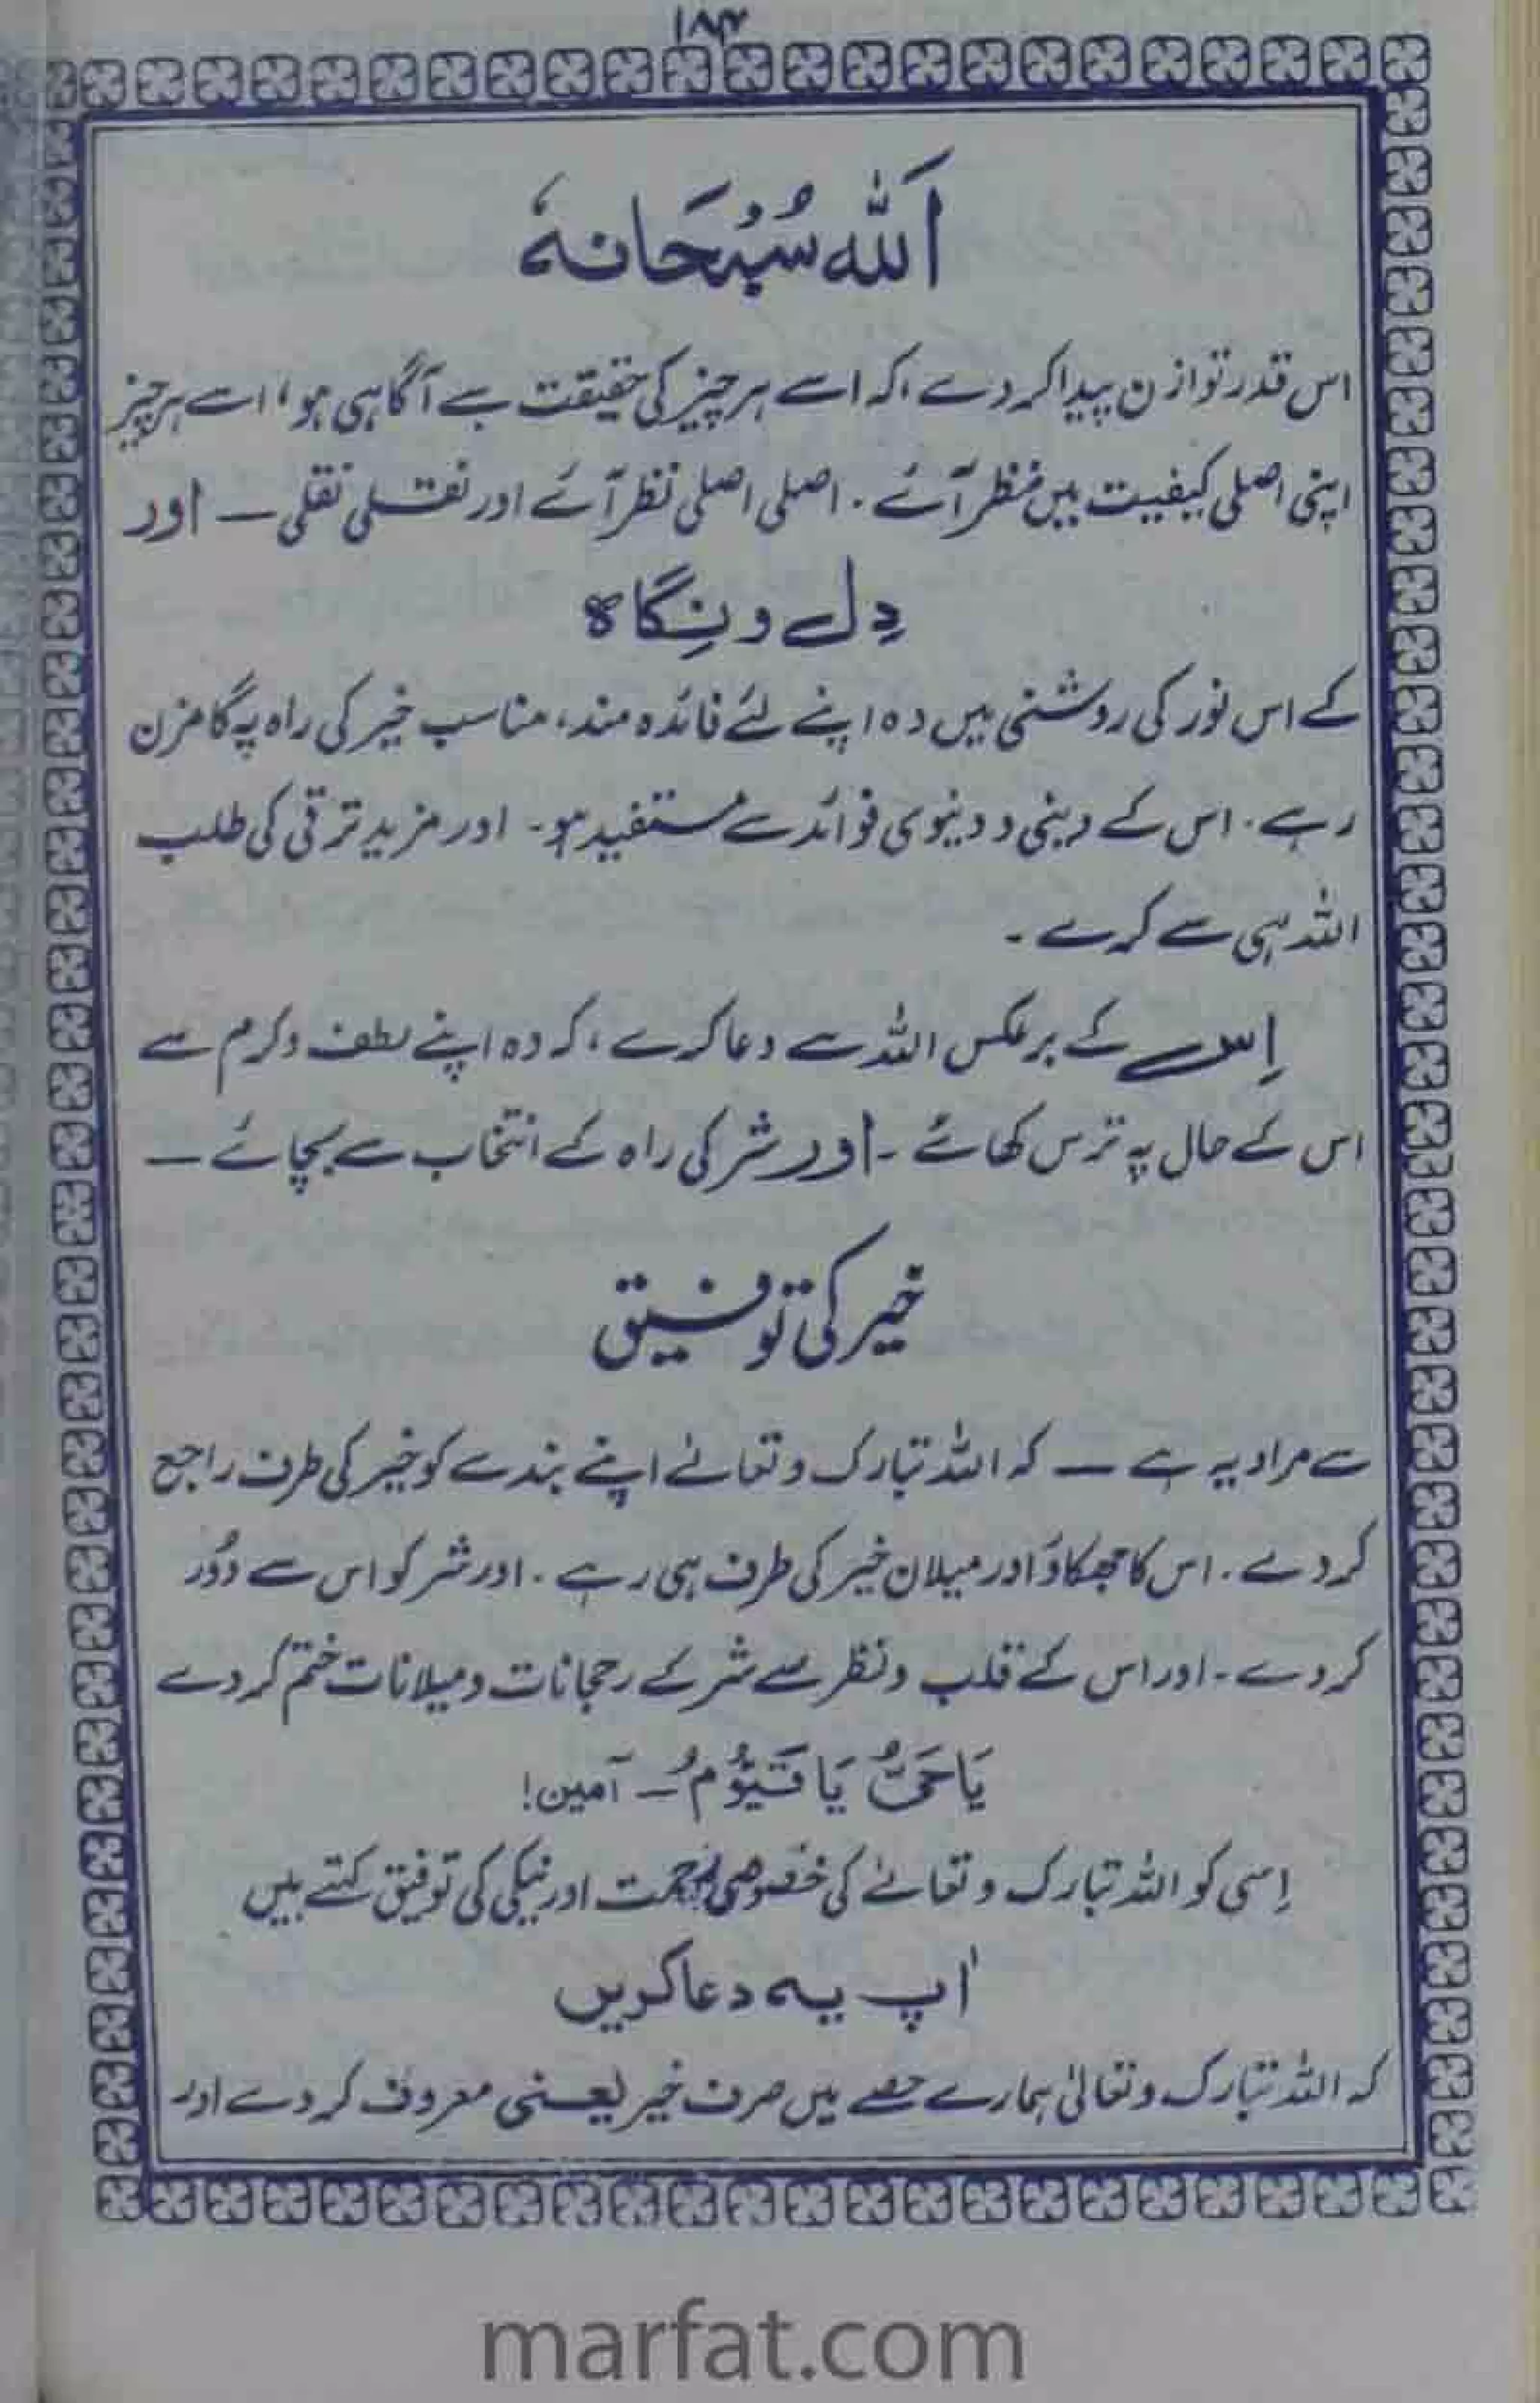 اَللہ سُبْحَانہٗ
اس قدر توازن پیدا کر دے ، کہ اسے ہر چیز کی حقیقت سے آگاہی ہو، اسے ہر چیز
اپنی اصلی کیفیت میں نظر آئے ۔ اصلی اصلی نظر آئے اور نقلی نقلی ــ اور
دِل و نِگاہ
کے اس نور کی روشنی میں وہ اپنے لئے فائدہ مند، مناسب خیر کی راہ پہ گامزن
رہے ۔ اس کے دینی و دینوی فوائد سے مستفید ہو ۔ اور مزید ترقی کی طلب
اللہ ہی سے کرے ۔
اِس کے برعکس اللہ سے دعا کرے ، کہ وہ اپنے لطف و کرم سے
اس کے حال پہ ترس کھائے ۔ اور شر کی راہ کے انتخاب سے بچائے ــ
خیر کی توفیق
سے مراد یہ ہے ــ کہ اللہ تبارک و تعالےٰ اپنے بندے کو خیر کی طرف راجع
کر دے ۔ اس کا جھکاؤ اور میلان خیر کی طرف ہی رہے ۔ اور شر کو اس سے دُور
کر دے ۔ اور اس کے قلب و نظر سے شر کے رحجانات و میلانات ختم کر دے
یَا حَیُّ یَا قَیُّوْمُ ــ آمین!
اِسی کو اللہ تبارک و تعالےٰ کی خصوصی رحمت اور نیکی کی توفیق کہتے ہیں
اٰپ یہ دعا کریں
کہ اللہ تبارک و تعالیٰ ہمارے حصے میں صرف خیر یعنی معروف کر دے اور
marfat.com